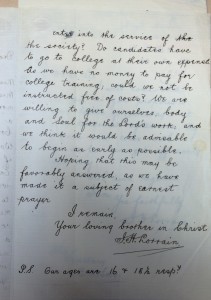 entry into the service of the
the society? Do candidates have
to go to college at their own expense
As we have no money to pay for
college training, could we not be
instructed free of costs? We are
willing to give ourselves, body
and soul for the Lord's work, and
we think it would be advisable
to begin as early as possible.
Hoping that this may be
favorably answered, as we have
made it a subject of earnest
prayer
I remain,
Your loving brother in Christ
Lorrain
P.S. Our ages are 16 & 18½ resp?